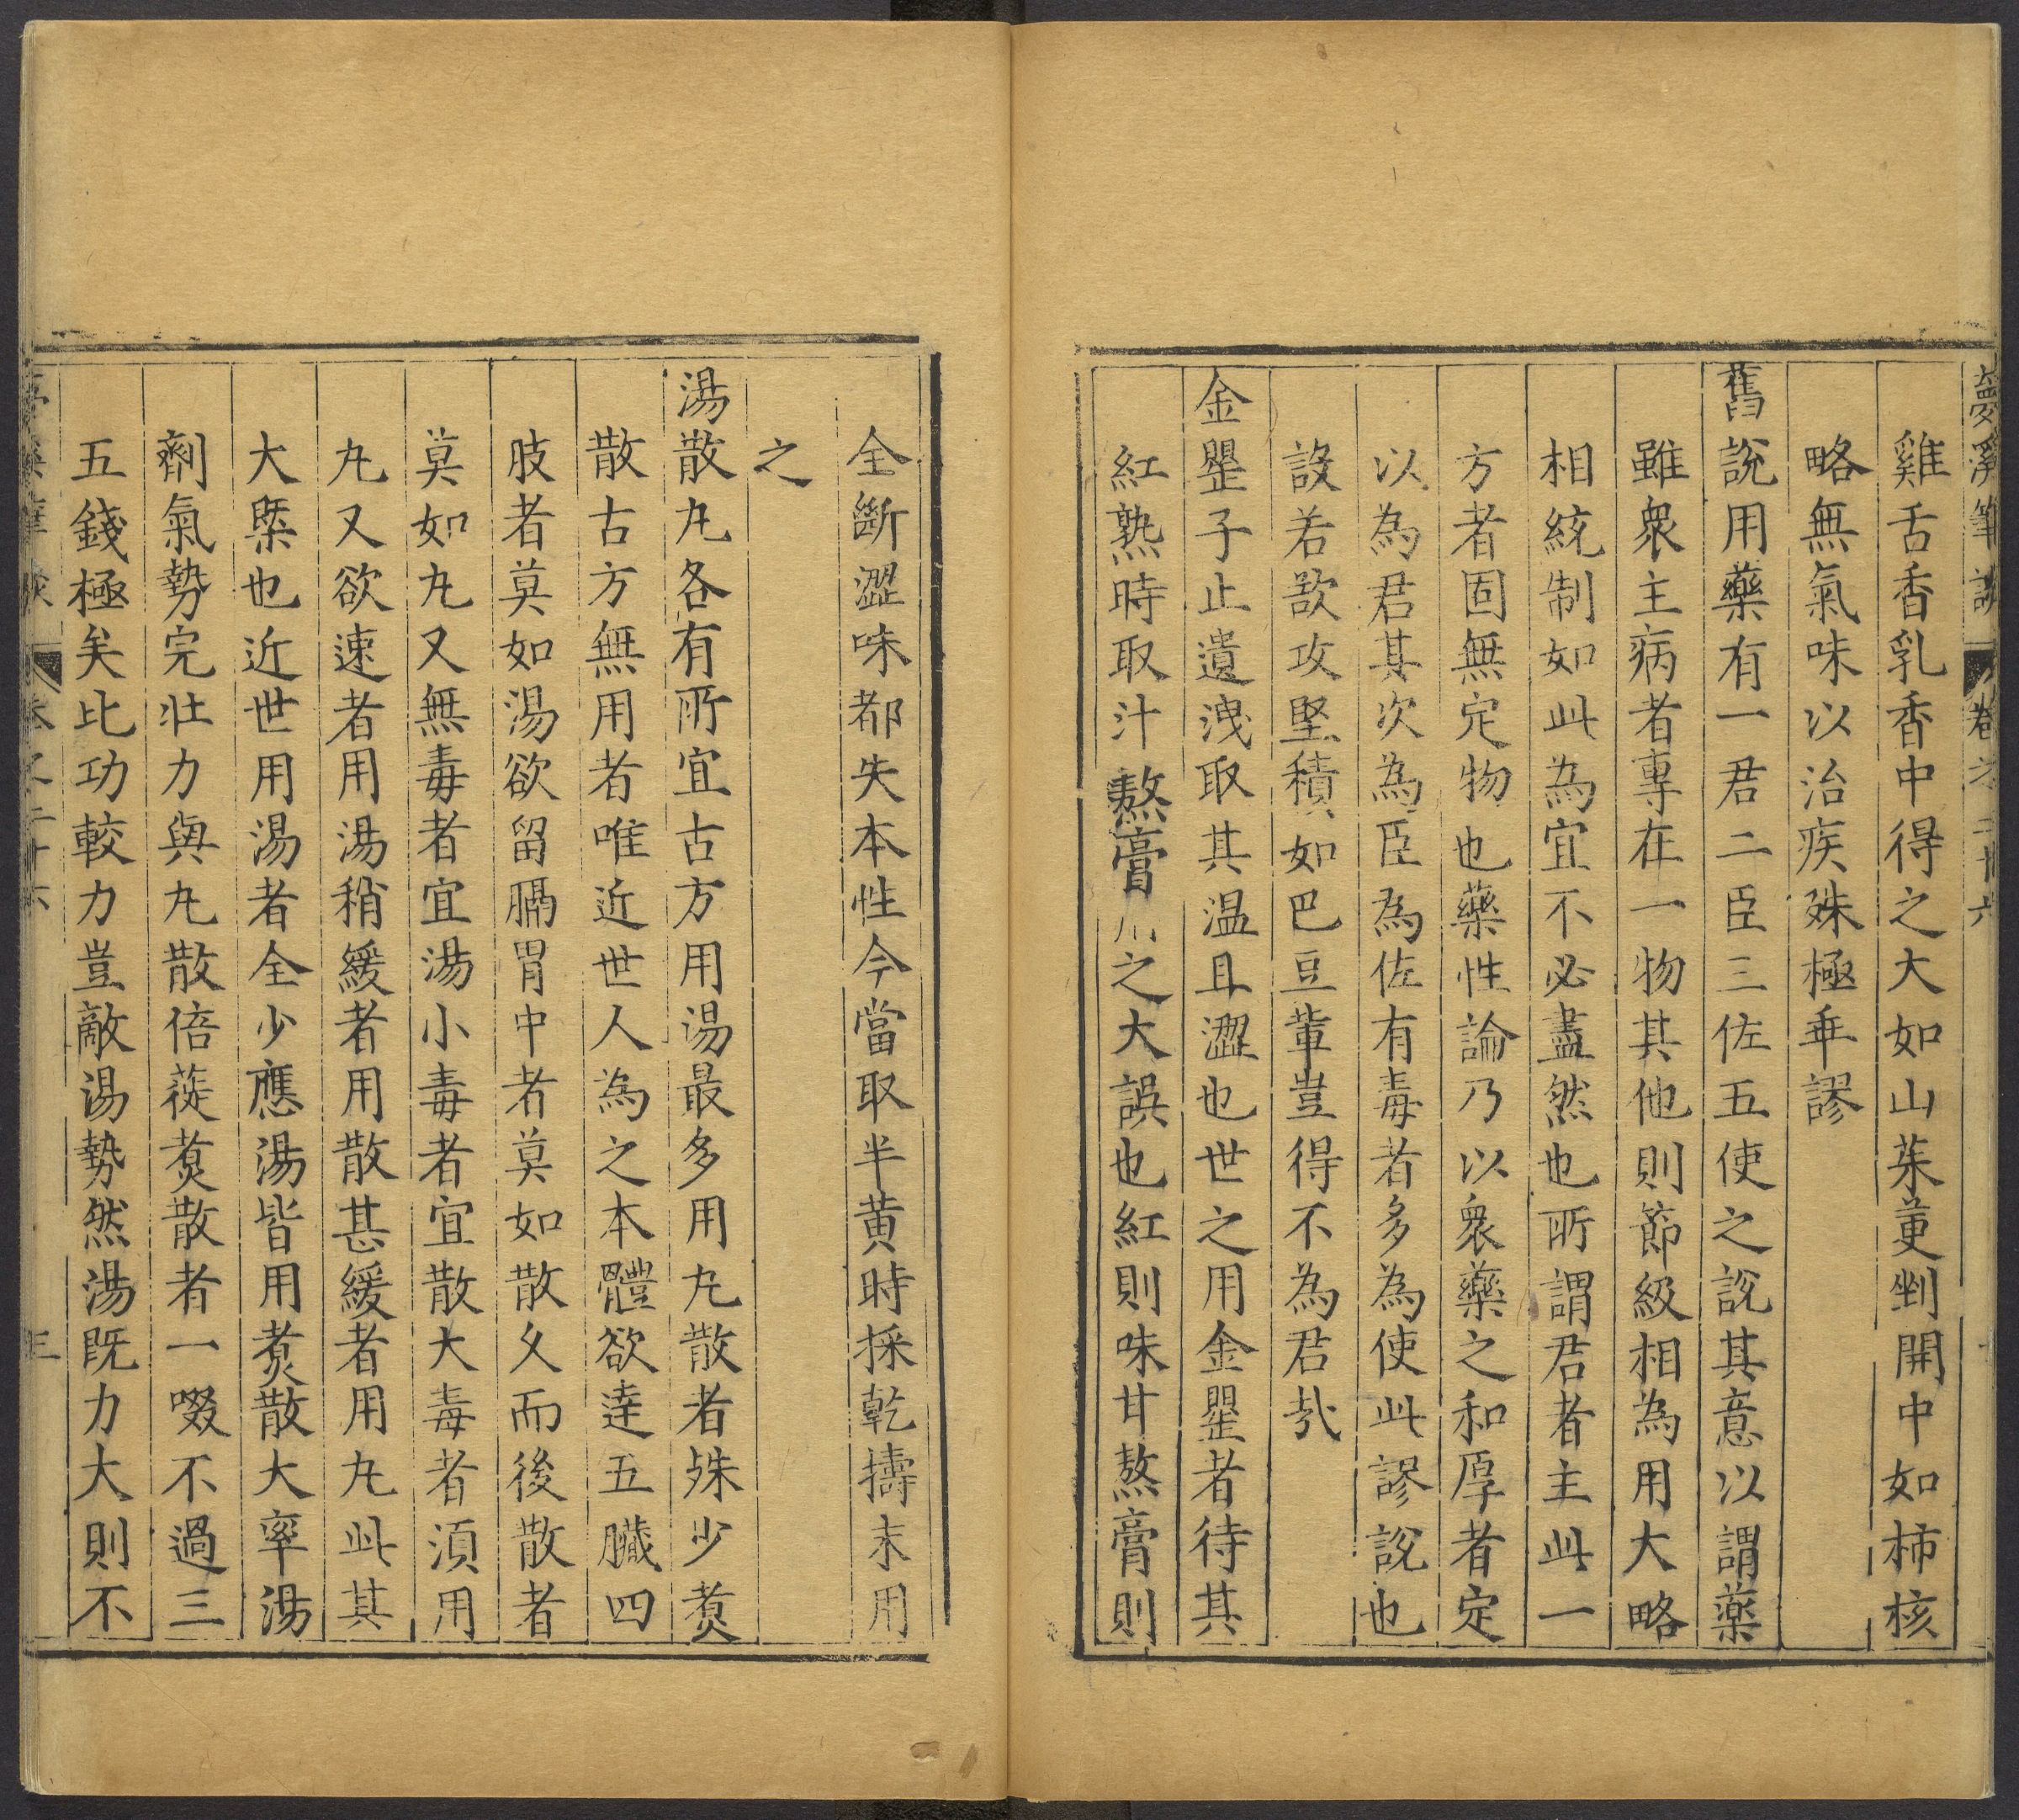 夢溪筆談 卷之二十六
雞舌香乳香中得之大如山茱萸剉開中如柿核
略無氣味以治疾殊極乖謬
舊說用藥有一君二臣三佐五使之說其意以謂藥
雖衆主病者專在一物其他則節級相為用大略
相統制如此為宜不必盡然也所謂君者主此一
方者固無定物也藥性論乃以衆藥之和厚者定
以為君其次為臣為佐有毒者多為使此謬說也
設若欲攻堅積如巴豆輩豈得不為君哉
金罌子止遺洩取其温且澀也世之用金罌者待其
紅熟時取汁熬膏之大誤也紅則味甘熬膏則
全斷澀味都失本性今當取半黄時採乾擣末用
之
湯散丸各有所宜古方用湯最多用丸散者殊少煑
散古方無用者唯近世人為之本體欲逹五臟四
肢者莫如湯欲留膈胃中者莫如散乆而後散者
莫如丸又無毒者宜湯小毒者宜散大毒者湏用
丸又欲速者用湯稍緩者用散甚緩者用丸此其
大槩也近世用湯者全少應湯皆用煑散大率湯
劑氣勢完壮力與丸散倍蓰煑散者一啜不過三
五錢極矣比功較力豈敵湯勢然湯既力大則不
夢溪筆談 卷之二十六 三